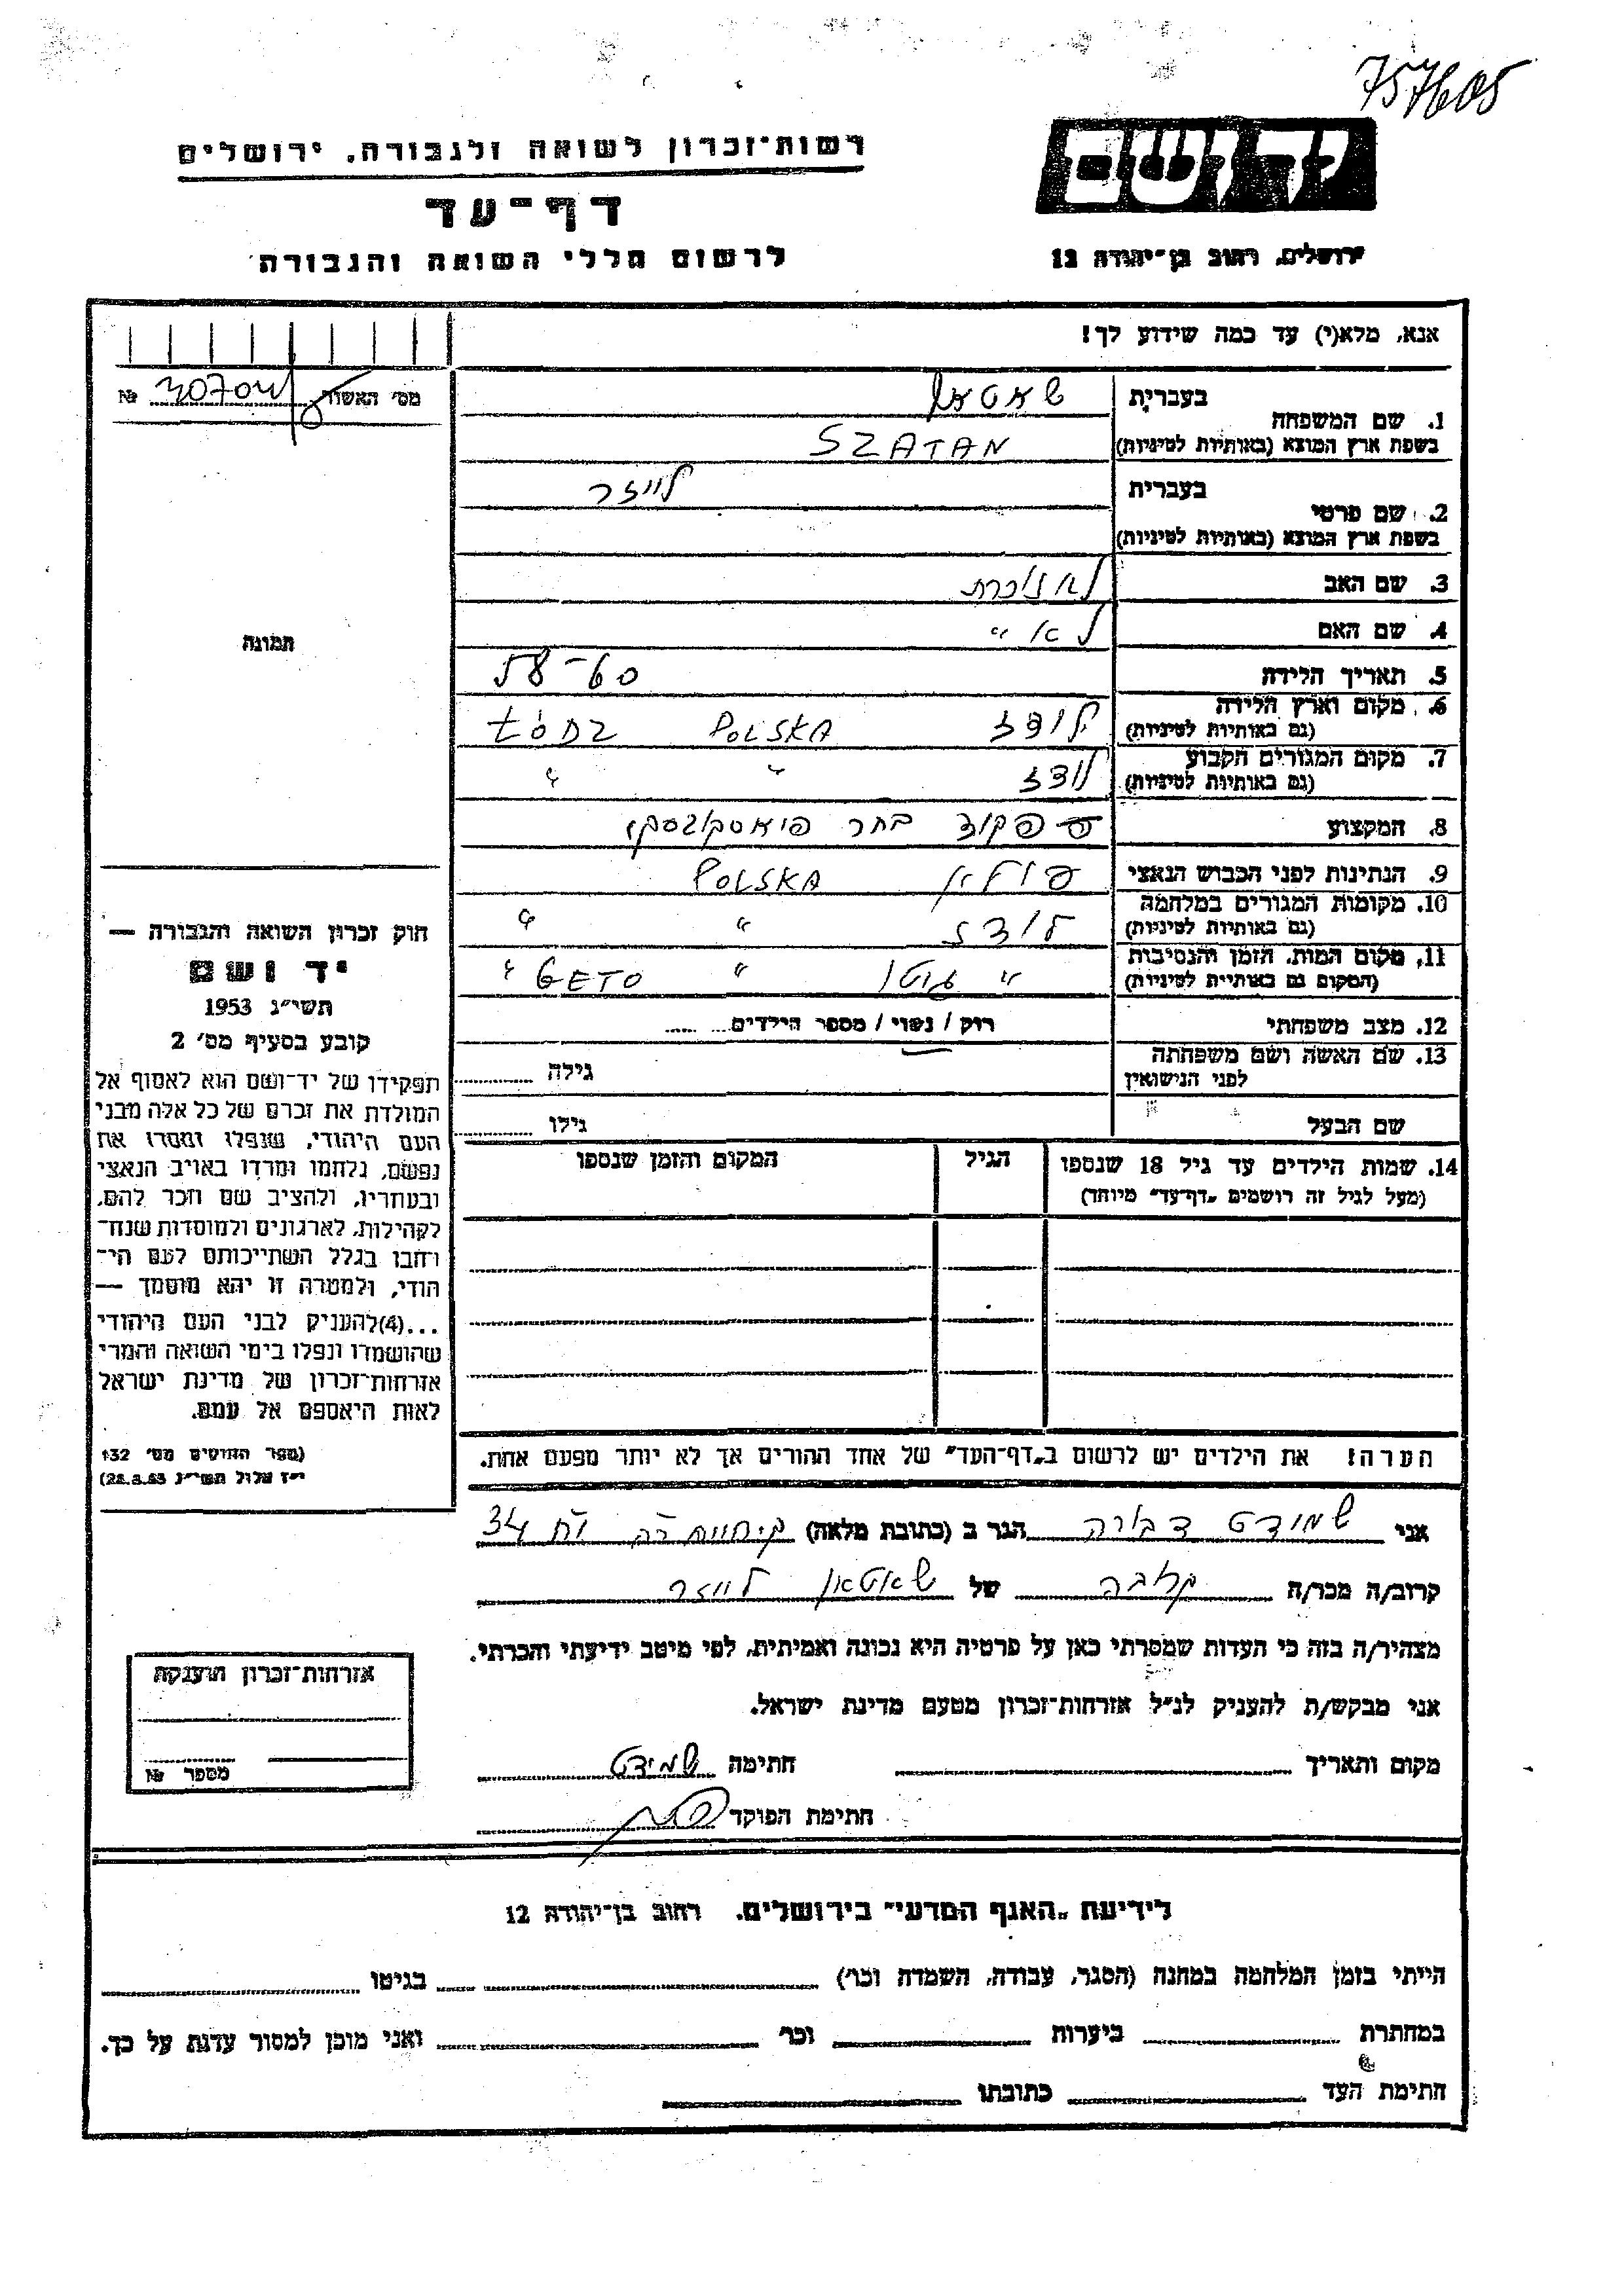 757605
רשות־זכרון לשואה ולגבורה, ירושלים
יד ושם
דף־עד
לרשום חללי השואה והגבורה
ירושלים, רחוב בן־יהודה 12
אנא, מלא(י) עד כמה שידוע לך!
מס׳ האשור № 30704
1. שם המשפחה
בעברית שאטאן
בשפת ארץ המוצא (באותיות לטיניות) SZATAN
2. שם פרטי
בעברית לייזר
בשפת ארץ המוצא (באותיות לטיניות)
3. שם האב לא זוכרת
4. שם האם לא "
5. תאריך הלידה 58-60
6. מקום וארץ הלידה
(גם באותיות לטיניות) לודז POLSKA ŁÓDZ
7. מקום המגורים הקבוע
(גם באותיות לטיניות) לודז " "
8. המקצוע פקיד בחר
9. הנתינות לפני הכבוש הנאצי פולין POLSKA
10. מקומות המגורים במלחמה
(גם באותיות לטיניות) לודז " "
11. מקום המות, הזמן והנסיבות
(המקום גם באותיות לטיניות) " גיטו " GETO "
12. מצב משפחתי רוק / נשוי / מספר הילדים
13. שם האשה ושם משפחתה
לפני הנישואין
גילה
שם הבעל
גילו
14. שמות הילדים עד גיל 18 שנספו
(מעל לגיל זה רושמים „דף־עד” מיוחד)
הגיל
המקום והזמן שנספו
הערה! את הילדים יש לרשום ב„דף־העד” של אחד ההורים אך לא יותר מפעם אחת.
תמונה
חוק זכרון השואה והגבורה —
יד ושם
תשי״ג 1953
קובע בסעיף מס׳ 2
תפקידו של יד־ושם הוא לאסוף אל
המולדת את זכרם של כל אלה מבני
העם היהודי, שנפלו ומסרו את
נפשם, נלחמו ומרדו באויב הנאצי
ובעוזריו, ולהציב שם וזכר להם,
לקהילות, לארגונים ולמוסדות שנח־
רבו בגלל השתייכותם לעם הי־
הודי, ולמטרה זו יהא מוסמך —
...(4)להעניק לבני העם היהודי
שהושמדו ונפלו בימי השואה והמרי
אזרחות־זכרון של מדינת ישראל
לאות היאספם אל עמם.
(ספר החוקים מס׳ 132
י״ז אלול תשי״ג 28.8.53)
אני שמידט דבורה הגר ב (כתובת מלאה) 34
קרוב/ה מכר/ה קרובה של שאטאן לייזר
מצהיר/ה בזה כי העדות שמסרתי כאן על פרטיה היא נכונה ואמיתית, לפי מיטב ידיעתי והכרתי.
אני מבקש/ת להעניק לנ״ל אזרחות־זכרון מטעם מדינת ישראל.
מקום ותאריך חתימה שמידט
חתימת הפוקד
אזרחות־זכרון הוענקה
מספר №
לידיעת „האגף המדעי” בירושלים. רחוב בן־יהודה 12
הייתי בזמן המלחמה במחנה (הסגר, עבודה, השמדה וכו׳) בגיטו
במחתרת ביערות וכו׳ ואני מוכן למסור עדות על כך.
חתימת העד כתובתו